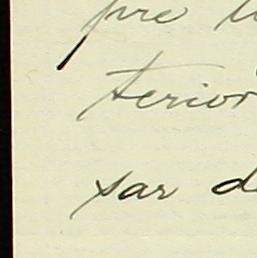 pre
terior
sar d